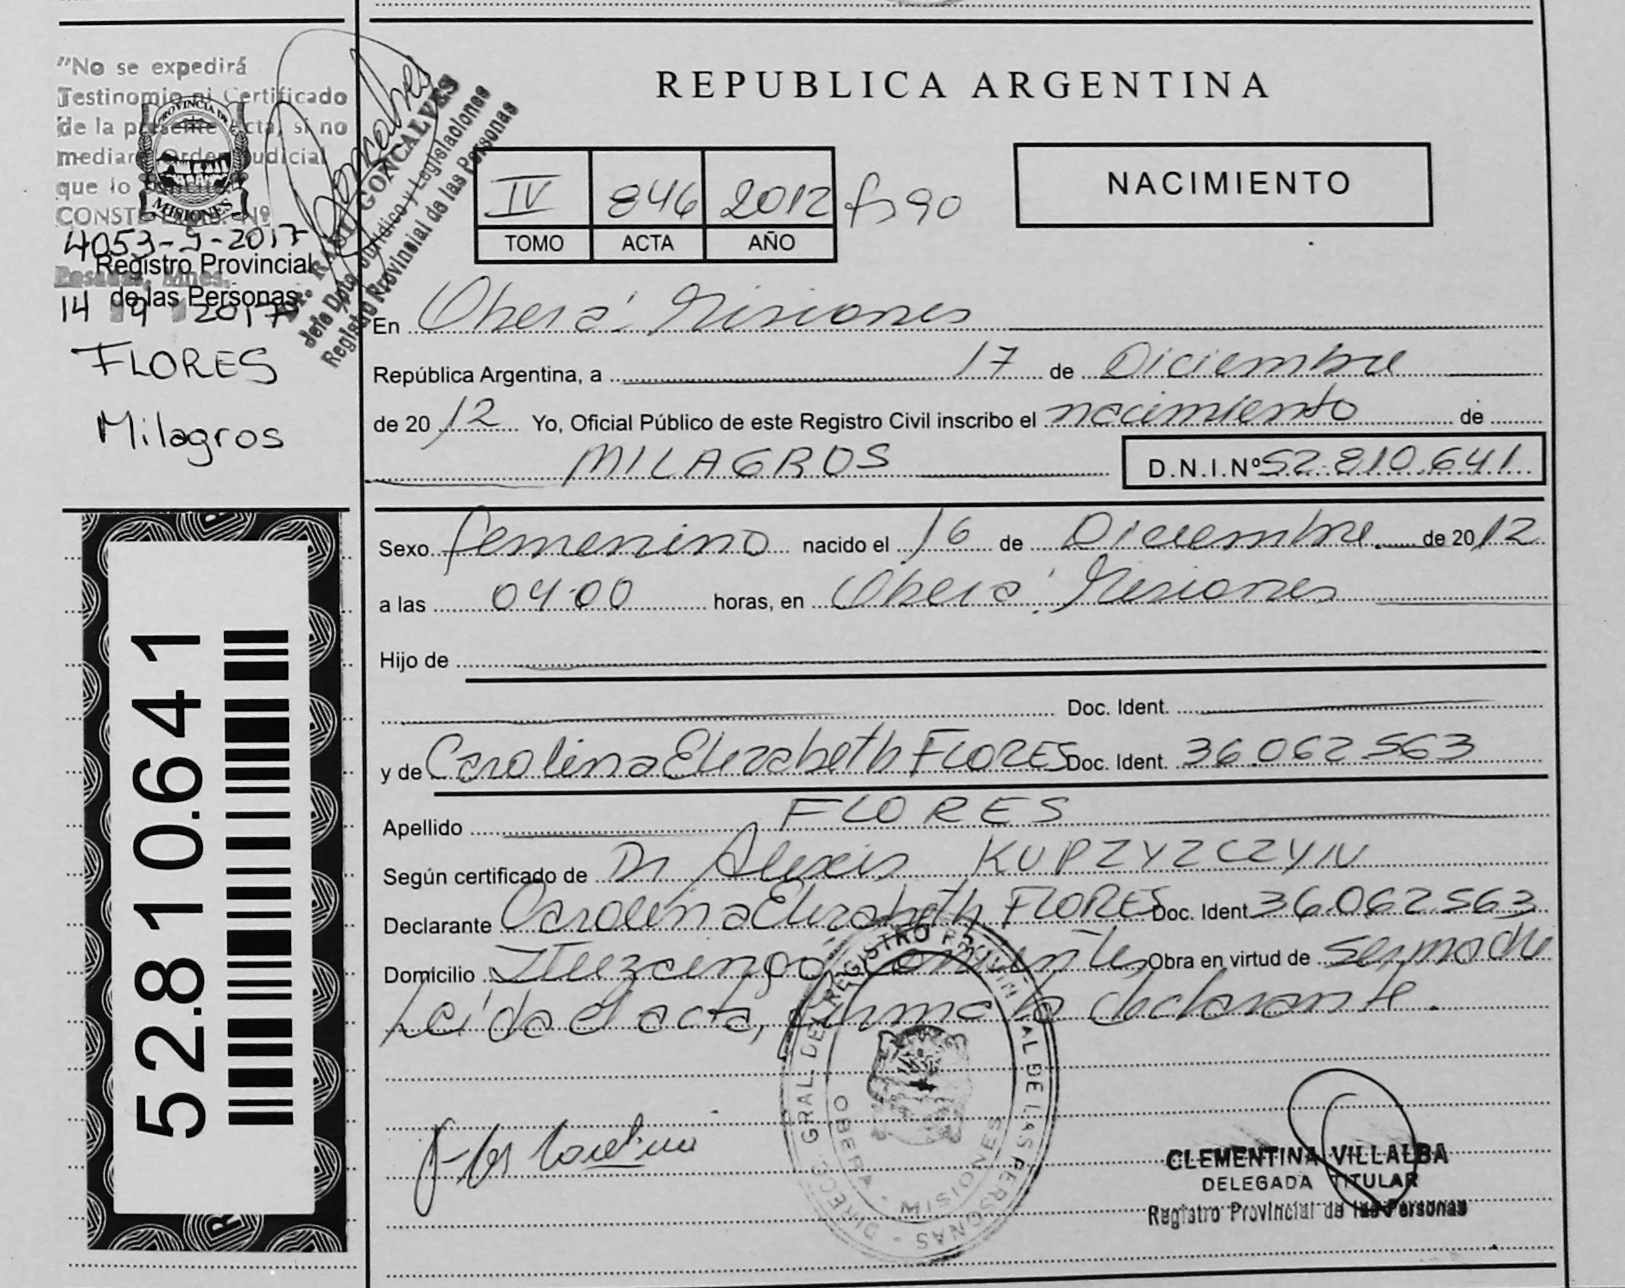 "No se expedirá
Testimonio ni Certificado
de la presente Acta, si no
mediare Orden Judicial
que lo
CONST Nº
4053-9-2017
Posadas, Mnes.
14 9 2017
PROVINCIA DE
MISIONES
Registro Provincial
de las Personas
FLORES
Milagros
Goncalves
Dr. RAUL GONCALVES
Jefe Dpto. Jurídico y Legislaciones
Registro Provincial de las Personas
REPUBLICA ARGENTINA
IV 846 2012 fs 90
TOMO ACTA AÑO
NACIMIENTO
En Oberá: Misiones
República Argentina, a 17 de Diciembre
de 2012 Yo, Oficial Público de este Registro Civil inscribo el nacimiento de
MILAGROS D.N.I.Nº 52.810.641
Sexo femenino nacido el 16 de Diciembre de 2012
a las 04:00 horas, en Oberá: Misiones
Hijo de
Doc. Ident.
y de Carolina Elizabeth FLORES Doc. Ident. 36.062.563
Apellido FLORES
Según certificado de Dr Alexis KUPZYZCZYIV
Declarante Carolina Elizabeth FLORES Doc. Ident 36.062.563
Domicilio Ituzaingó, Corrientes Obra en virtud de ser madre
Leída el acta, firma la declarante.
52.810.641
DIREC. GRAL. DEL REGISTRO PROVINCIAL DE LAS PERSONAS
OBERA - MISIONES
Flores Carolina
CLEMENTINA VILLALBA
DELEGADA TITULAR
Registro Provincial de las Personas